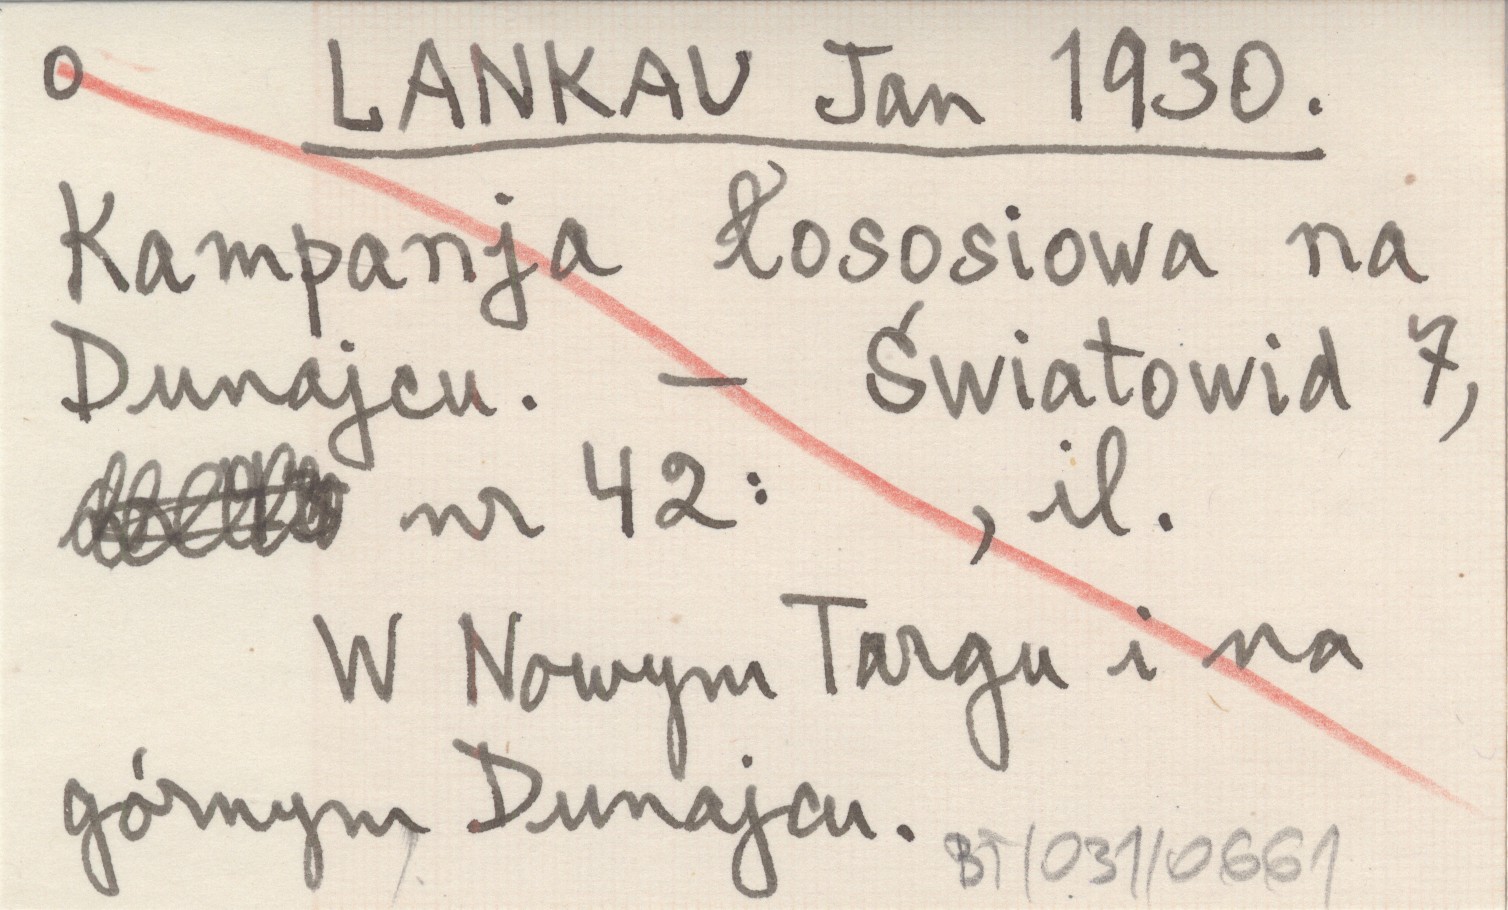 o LANKAU Jan 1930.
Kampanja łososiowa na
Dunajcu. — Światowid 7,
nr 42: , il.
W Nowym Targu i na
górnym Dunajcu.
BT/031/0661